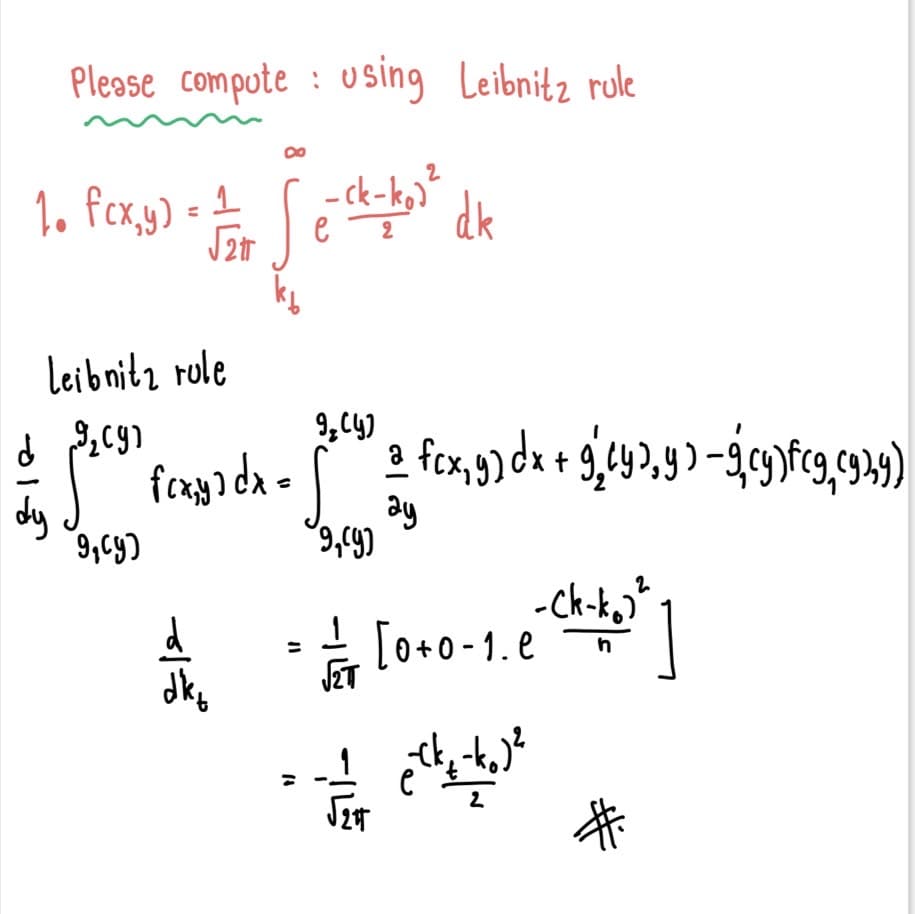 Please compute : using Leibnitz rule
1. f(x,y) = 1/√2π ∫_{k_t}^{∞} e^{-(k-k₀)²/2} dk
Leibnitz rule
d/dy ∫_{g₁(y)}^{g₂(y)} f(x,y) dx = ∫_{g₁(y)}^{g₂(y)} ∂/∂y f(x,y) dx + g₂'(y),y) - g₁'(y)f(g₁(y),y)
d/dk_t = 1/√2π [0+0-1. e^{-(k-k₀)²/n}]
= -1/√2π e^{-(k_t-k₀)²/2}
#.